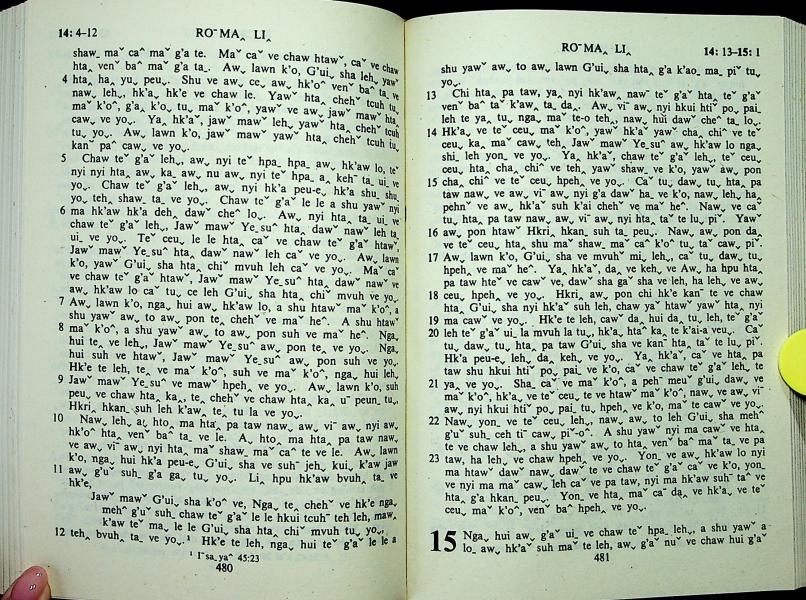 14: 4–12 RO¯ MAˬ LIˬ
shawˍ maˇ caˆ maˇ g'a te. Maˇ caˇ ve chaw htawˇ, caˇ ve chaw
htaˬ venˇ baˆ maˇ g'a taˍ. Awˬ lawn k'o, G'uiˬ sha lehˬ yawˇ
4 htaˬ haˬ yuˬ peuˬ. Shu ve awˬ ceˬ awˬ hk'oˆ venˇ baˆ taˍ ve
nawˬ lehˬ, hk'aˬ hk'e ve chaw le. Yawˇ htaˬ chehˇ tcuh tuˬ
maˇ k'oˆ, g'aˬ k'oˬ tuˬ maˇ k'oˆ, yawˇ ve awˬ jawˇ mawˇ htaˬ
cawˬ ve yoˬ. Yaˬ hk'aˇ, jawˇ mawˇ lehˬ yawˇ htaˬ chehˇ tcuh
tuˬ yoˬ. Awˬ lawn k'o, jawˇ mawˇ yawˇ htaˬ chehˇ tcuh tuˬ
kanˇ paˆ cawˬ ve yoˬ.
5 Chaw teˇ g'aˇ lehˬ, awˬ nyi teˇ hpaˍ hpaˍ awˬ hk'aw lo, teˇ
nyi nyi htaˬ awˬ kaˬ awˬ nu awˬ nyi teˇ hpaˍ aˬ kehˆ taˍ uiˍ ve
yoˬ. Chaw teˇ g'aˇ lehˬ, awˬ nyi hk'a peu-eˬ hk'a shuˍ shuˍ
yoˬ tehˬ shawˍ taˍ ve yoˬ. Chaw teˇ g'aˇ le le a shu yawˇ nyi
6 ma hk'aw hk'a dehˬ dawˇ cheˆ loˬ. Awˬ nyi htaˬ taˍ uiˍ ve
chaw teˇ g'aˇ lehˬ, Jawˇ mawˇ Yeˍsuˆ htaˬ dawˇ nawˇ leh taˍ
uiˍ ve yoˬ. Teˇ ceuˬ le le htaˬ caˇ ve chaw teˇ g'aˇ htawˇ,
Jawˇ mawˇ Yeˍsuˆ htaˬ dawˇ nawˇ leh caˇ ve yoˬ. Awˬ lawn
k'o, yawˇ G'uiˬ sha htaˬ chiˇ mvuh leh caˇ ve yoˬ. Maˇ caˇ
ve chaw teˇ g'aˇ htawˇ, Jawˇ mawˇ Yeˍsuˆ htaˬ dawˇ nawˇ ve
awˬ hk'aw lo caˇ tuˬ ce leh G'uiˬ sha htaˬ chiˇ mvuh ve yoˬ.
7 Awˬ lawn k'o, ngaˬ hui awˬ hk'aw lo, a shu htawˇ maˇ k'oˆ, a
shu yawˇ awˬ to awˬ pon teˬ chehˇ ve maˇ heˆ. A shu htawˇ
8 maˇ k'oˆ, a shu yawˇ awˬ to awˬ pon suh ve maˇ heˆ. Ngaˬ
hui teˬ ve lehˬ, Jawˇ mawˇ Yeˍsuˆ awˬ pon teˬ ve yoˬ. Ngaˬ
hui suh ve htawˇ, Jawˇ mawˇ Yeˍsuˆ awˬ pon suh ve yoˬ.
Hk'e te leh, teˬ ve maˇ k'oˆ, suh ve maˇ k'oˆ, ngaˬ hui leh,
9 Jawˇ mawˇ Yeˍsuˆ ve mawˇ hpehˬ ve yoˬ. Awˬ lawn k'o, suh
peuˬ ve chaw htaˬ kaˬ, teˬ chehˇ ve chaw htaˬ kaˬ uˇ peunˍ tuˬ,
Hkriˬ hkanˬ suh leh k'aw teˬ tu la ve yoˬ.
10 Nawˬ leh, aˬ htoˬ ma htaˬ pa taw nawˬ awˬ viˉ awˬ nyi awˬ
hk'oˆ htaˬ venˇ baˆ taˍ ve le. Aˬ htoˬ ma htaˬ pa taw nawˬ
ve awˬ viˉ awˬ nyi htaˬ maˇ shawˍ maˇ caˆ te ve le. Awˬ lawn
k'o, ngaˬ hui hk'a peu-eˬ G'uiˬ sha ve suhˉ jehˬ kuiˬ k'aw jaw
11 awˬ g'uˇ suhˬ g'a gaˬ tuˬ yoˬ. Liˬ hpu hk'aw bvuhˬ taˍ ve
hk'e,
Jawˇ mawˇ G'uiˬ sha k'oˆ ve, Ngaˬ teˬ chehˇ ve hk'e ngaˬ
mehˆ g'uˇ suhˬ chaw teˇ g'aˇ le le hkui tcuhˉ teh leh, mawˬ
k'aw teˇ maˬ le le G'uiˬ sha htaˬ chiˇ mvuh tuˬ yoˬ,
12 tehˬ bvuhˬ taˍ ve yoˬ.¹ Hk'e te leh, ngaˬ hui teˇ g'aˇ le le a
¹ Iˉ saˍ yaˆ 45:23
480
RO¯ MAˬ LIˬ 14: 13–15: 1
shu yawˇ awˬ to awˬ lawn G'uiˬ sha htaˬ g'a k'aoˍ maˍ piˇ tuˬ
yoˬ.
13 Chi htaˬ pa taw, yaˬ nyi hk'awˬ nawˉ teˇ g'aˇ htaˬ teˇ g'aˇ
venˇ baˆ taˇ k'awˬ taˍ daˬ. Awˬ viˉ awˬ nyi hkui htiˇ poˬ paiˍ
leh te yaˬ tuˬ ngaˬ maˇ te-o tehˬ, nawˬ hui dawˇ cheˆ taˍ loˬ.
14 Hk'aˬ ve teˇ ceuˬ maˇ k'oˆ, yawˇ hk'aˇ yawˇ chaˬ chiˆ ve teˇ
ceuˬ kaˬ maˇ cawˬ teh, Jawˇ mawˇ Yeˍsuˆ awˬ hk'aw lo ngaˬ
shiˬ leh yonˍ ve yoˬ. Yaˬ hk'aˇ, chaw teˇ g'aˇ lehˬ, teˇ ceuˬ
ceuˬ htaˬ chaˬ chiˆ ve teh yawˇ shawˍ ve k'o, yawˇ awˬ pon
15 chaˬ chiˆ ve teˇ ceuˬ hpehˬ ve yoˬ. Caˇ tuˬ dawˬ tuˬ htaˬ pa
taw nawˬ ve awˬ viˉ awˬ nyi g'a dawˇ haˍ ve k'o, nawˬ lehˬ haˬ
pehnˇ ve awˬ hk'aˇ suh k'ai chehˇ ve maˇ heˆ. Nawˬ ve caˇ
tuˬ htaˬ pa taw nawˬ awˬ viˉ awˬ nyi htaˬ taˇ te luˬ piˇ. Yawˇ
16 awˬ pon htawˇ Hkriˬ hkanˬ suh taˍ peuˬ. Nawˬ awˬ pon daˬ
ve teˇ ceuˬ htaˬ shu maˇ shawˍ maˇ caˆ k'oˆ tuˬ taˇ cawˬ piˇ.
17 Awˬ lawn k'o, G'uiˬ sha ve mvuhˇ miˬ lehˬ, caˇ tuˬ dawˬ tuˬ
hpehˬ ve maˇ heˆ. Yaˬ hk'aˇ, daˬ ve kehˬ ve Awˬ ha hpu htaˬ
pa taw hteˇ ve cawˇ ve, dawˇ sha gaˇ sha ve leh, ha lehˬ ve awˬ
18 ceuˬ hpehˬ ve yoˬ. Hkriˬ awˬ pon chi hk'e kanˉ te ve chaw
htaˬ G'uiˬ sha nyi hk'aˇ suh leh, chaw yaˇ htawˇ yawˇ htaˬ nyi
19 ma cawˇ ve yoˬ. Hk'e te leh, cawˇ daˬ hui daˬ tuˬ leh, teˇ g'aˇ
20 leh teˇ g'aˇ uiˍ la mvuh la tuˬ, hk'aˬ htaˬ kaˬ te k'ai-a veuˬ. Caˇ
tuˬ dawˬ tuˬ htaˬ pa taw G'uiˬ sha ve kanˉ htaˬ taˇ te luˬ piˇ.
Hk'a peu-eˬ lehˬ daˬ kehˬ ve yoˬ. Yaˬ hk'aˇ, caˇ ve htaˬ pa
taw shu hkui htiˇ poˬ paiˍ ve k'o, caˇ ve chaw teˇ g'aˇ lehˬ te
21 yaˬ ve yoˬ. Shaˍ caˇ ve maˇ k'oˆ, a pehˉ meuˇ g'uiˬ dawˬ ve
maˇ k'oˆ, hk'aˬ ve teˇ ceuˬ te ve htawˇ maˇ k'oˆ, nawˬ ve awˬ viˉ
awˬ nyi hkui htiˇ poˬ paiˍ tuˬ hpehˬ ve k'o, maˇ te cawˇ ve yoˬ.
22 Nawˬ yonˍ ve teˇ ceuˬ lehˬ, nawˬ awˬ to leh G'uiˬ sha mehˆ
g'uˇ suhˬ ceh tiˉ cawˬ piˇ-oˆ. A shu yawˇ nyi ma cawˇ ve htaˬ
te ve chaw lehˬ, a shu yawˇ awˬ to htaˬ venˇ baˆ maˇ taˍ ve pa
23 taw, ha leh ve chaw hpehˬ ve yoˬ. Yonˍ ve awˬ hk'aw lo nyi
ma htawˇ dawˇ nawˬ dawˇ te ve chaw teˇ g'aˇ caˇ ve k'o, yonˍ
ve nyi ma maˇ cawˬ leh caˇ ve pa taw, nyi ma hk'aw suhˉ taˆ ve
htaˬ g'a hkanˬ peuˬ. Yonˍ ve htaˬ maˇ caˉ daˬ ve hk'aˬ ve teˇ
ceuˬ maˇ k'oˆ, venˇ baˆ hpehˬ ve yoˬ.
15 Ngaˬ hui awˬ g'aˇ uiˍ ve chaw teˇ hpaˍ lehˬ, a shu yawˇ aˉ
loˍ awˬ hk'aˇ suh maˇ te leh, awˬ g'aˇ nuˇ ve chaw hui g'aˇ
481